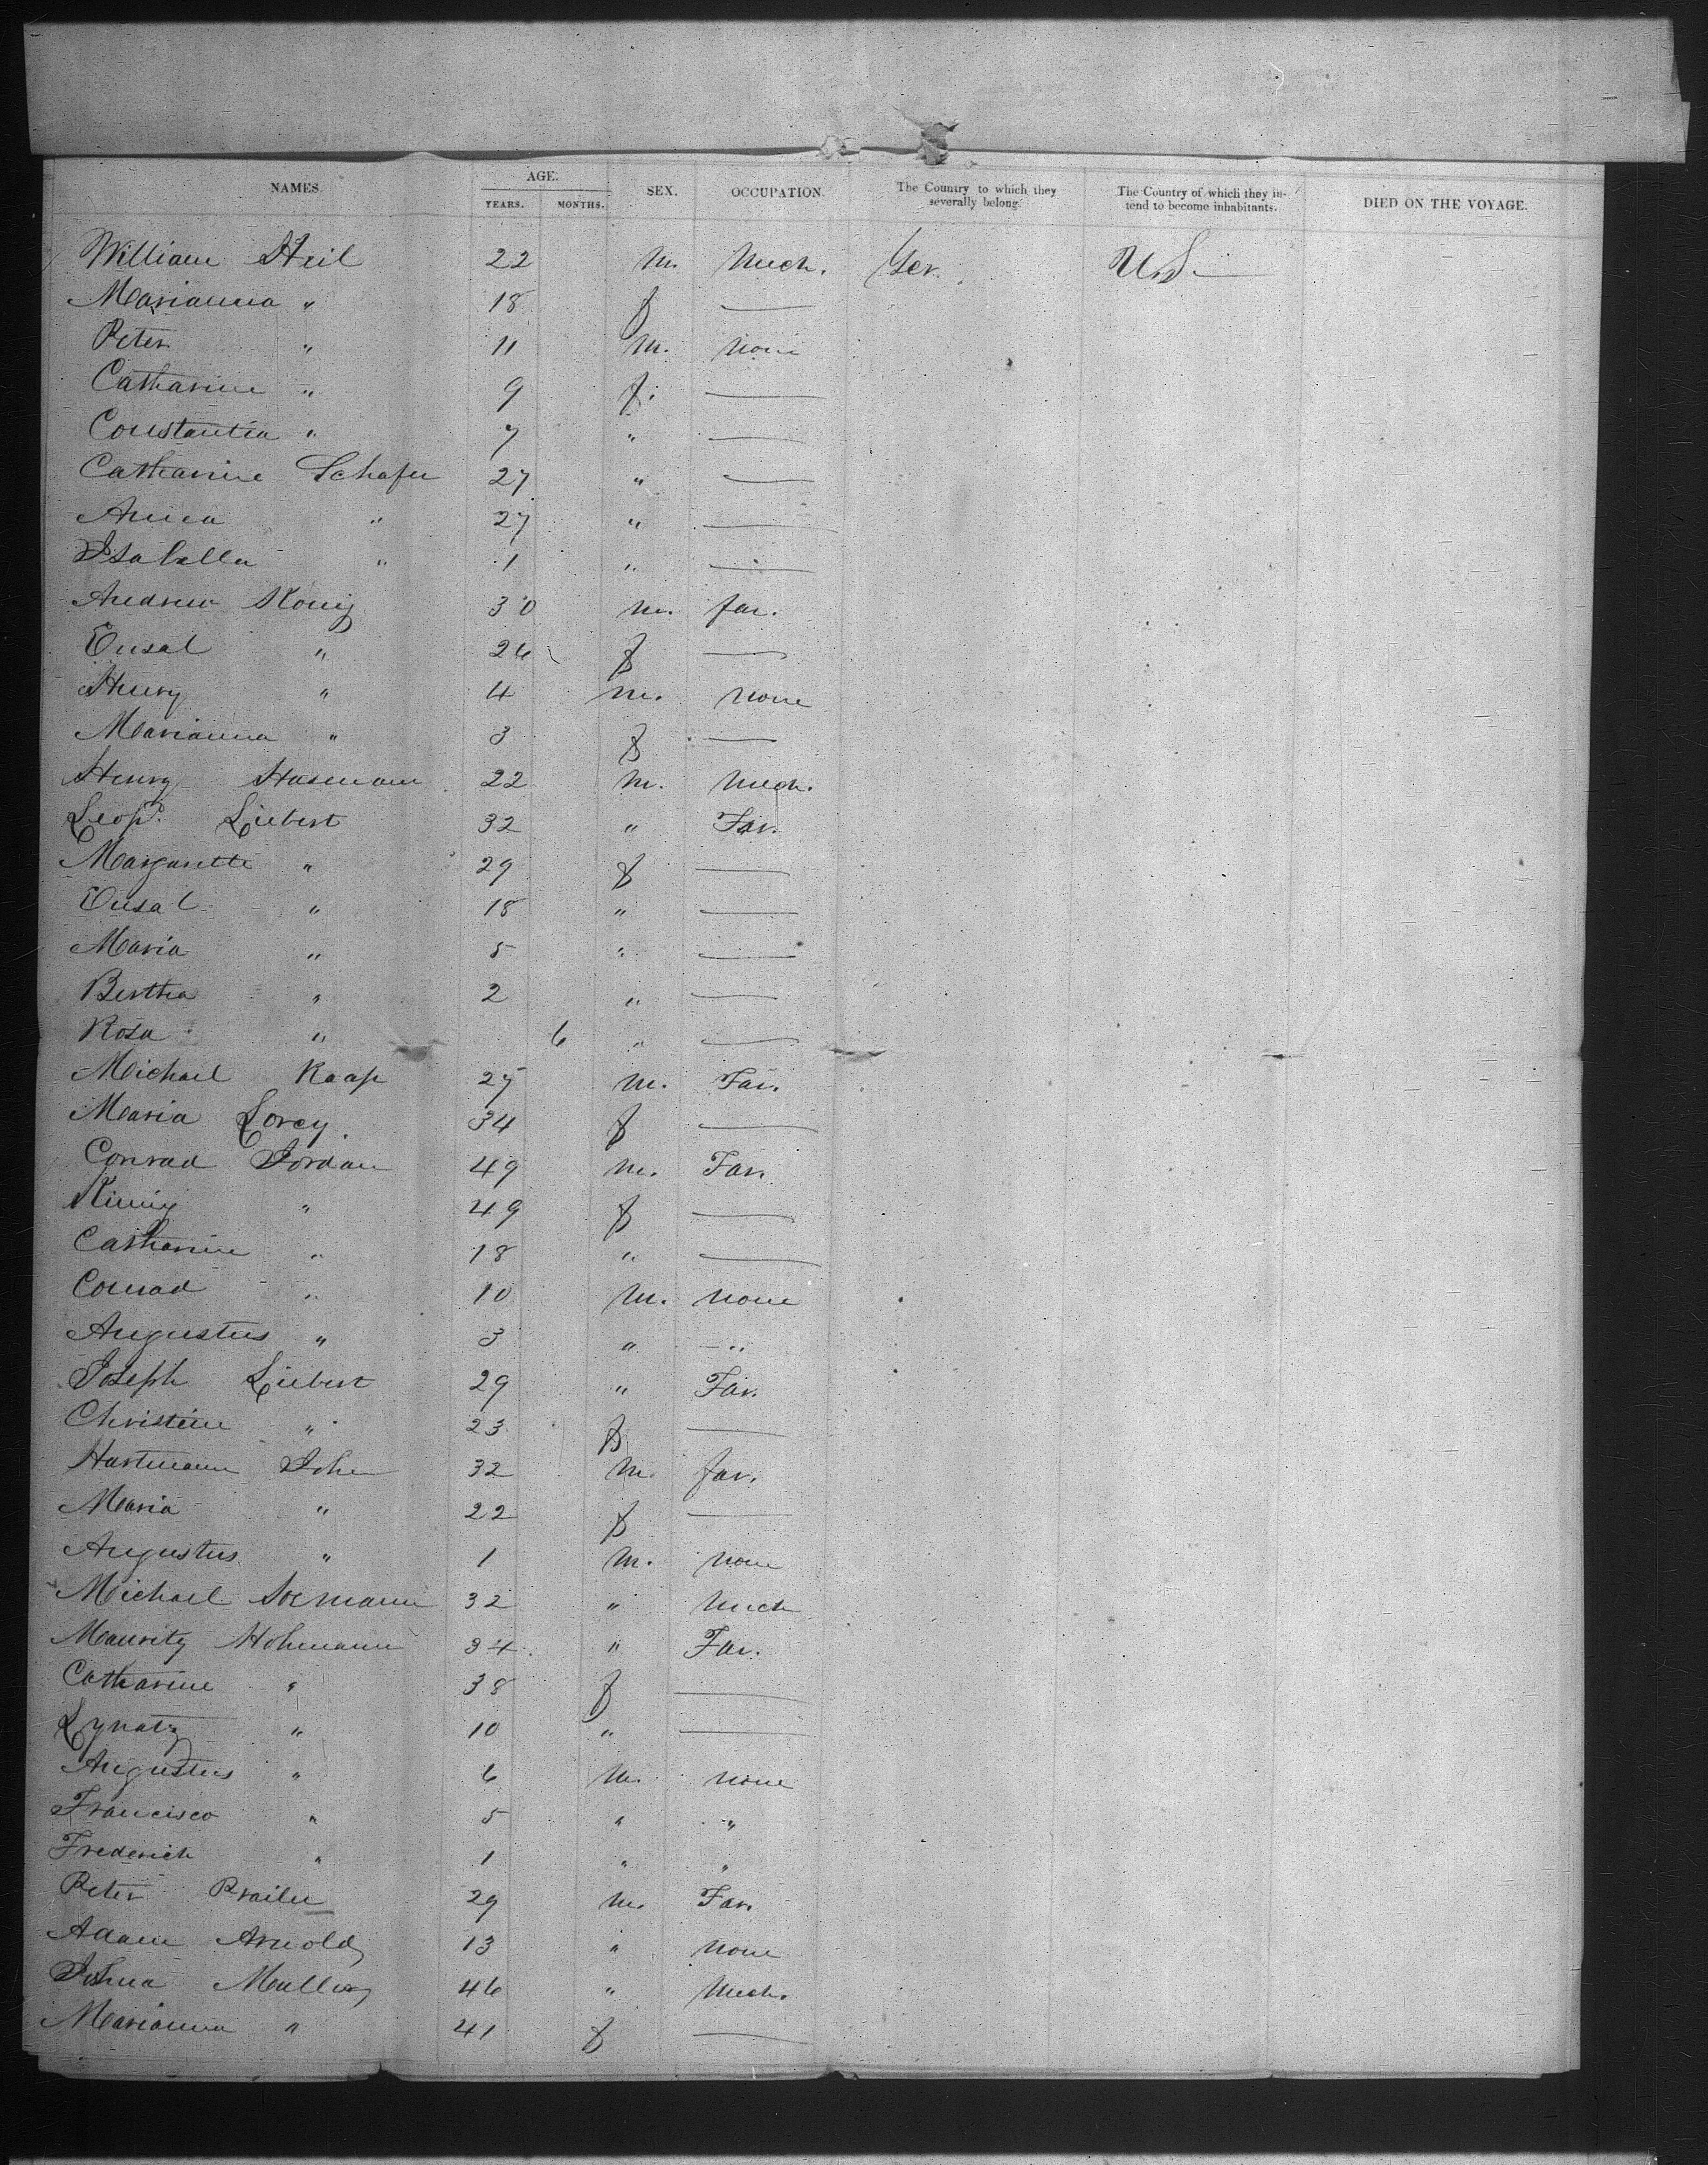 NAMES. AGE. YEARS. MONTHS. SEX. OCCUPATION. The Country to which they severally belong. The Country of which they intend to become inhabitants. DIED ON THE VOYAGE.
William Heil 22 m. Mech. Ger. U.S. —
Marianna " 18 f —
Peter " 11 m. none
Catharine " 9 f. —
Constantia " 7 " —
Catharine Schafer 27 " —
Anna " 27 " —
Isabella " 1 " —
Andrew Konig 30 m. far.
" 26 f —
Henry " 4 m. none
Marianna " 3 f —
Henry Hasmann 22 m. Mech.
Leop. Liebert 32 " Far.
Margarette " 29 f —
" 18 " —
Maria " 5 " —
Bertha " 2 " —
Rosa " 6 " —
Michael Raap 25 m. Far.
Maria Lorey 34 f —
Conrad Jordan 49 m. Far.
" 49 f —
Catharine " 18 " —
Conrad " 10 m. none
Augustus " 3 " — "
Joseph Liebert 29 " Far.
Christine " 23 f —
Hartmann John 32 m. far.
Maria " 22 f —
Augustus " 1 m. none
Michael 32 " Mech
Mauritz Hohmann 34 " Far.
Catharine " 38 f —
" 10 " —
Augustus " 6 m. none
Francisco " 5 " "
Frederich " 1 " "
Peter 29 m. Far.
Adam Arnold 13 " none
46 " Mech.
Marianna " 41 f —